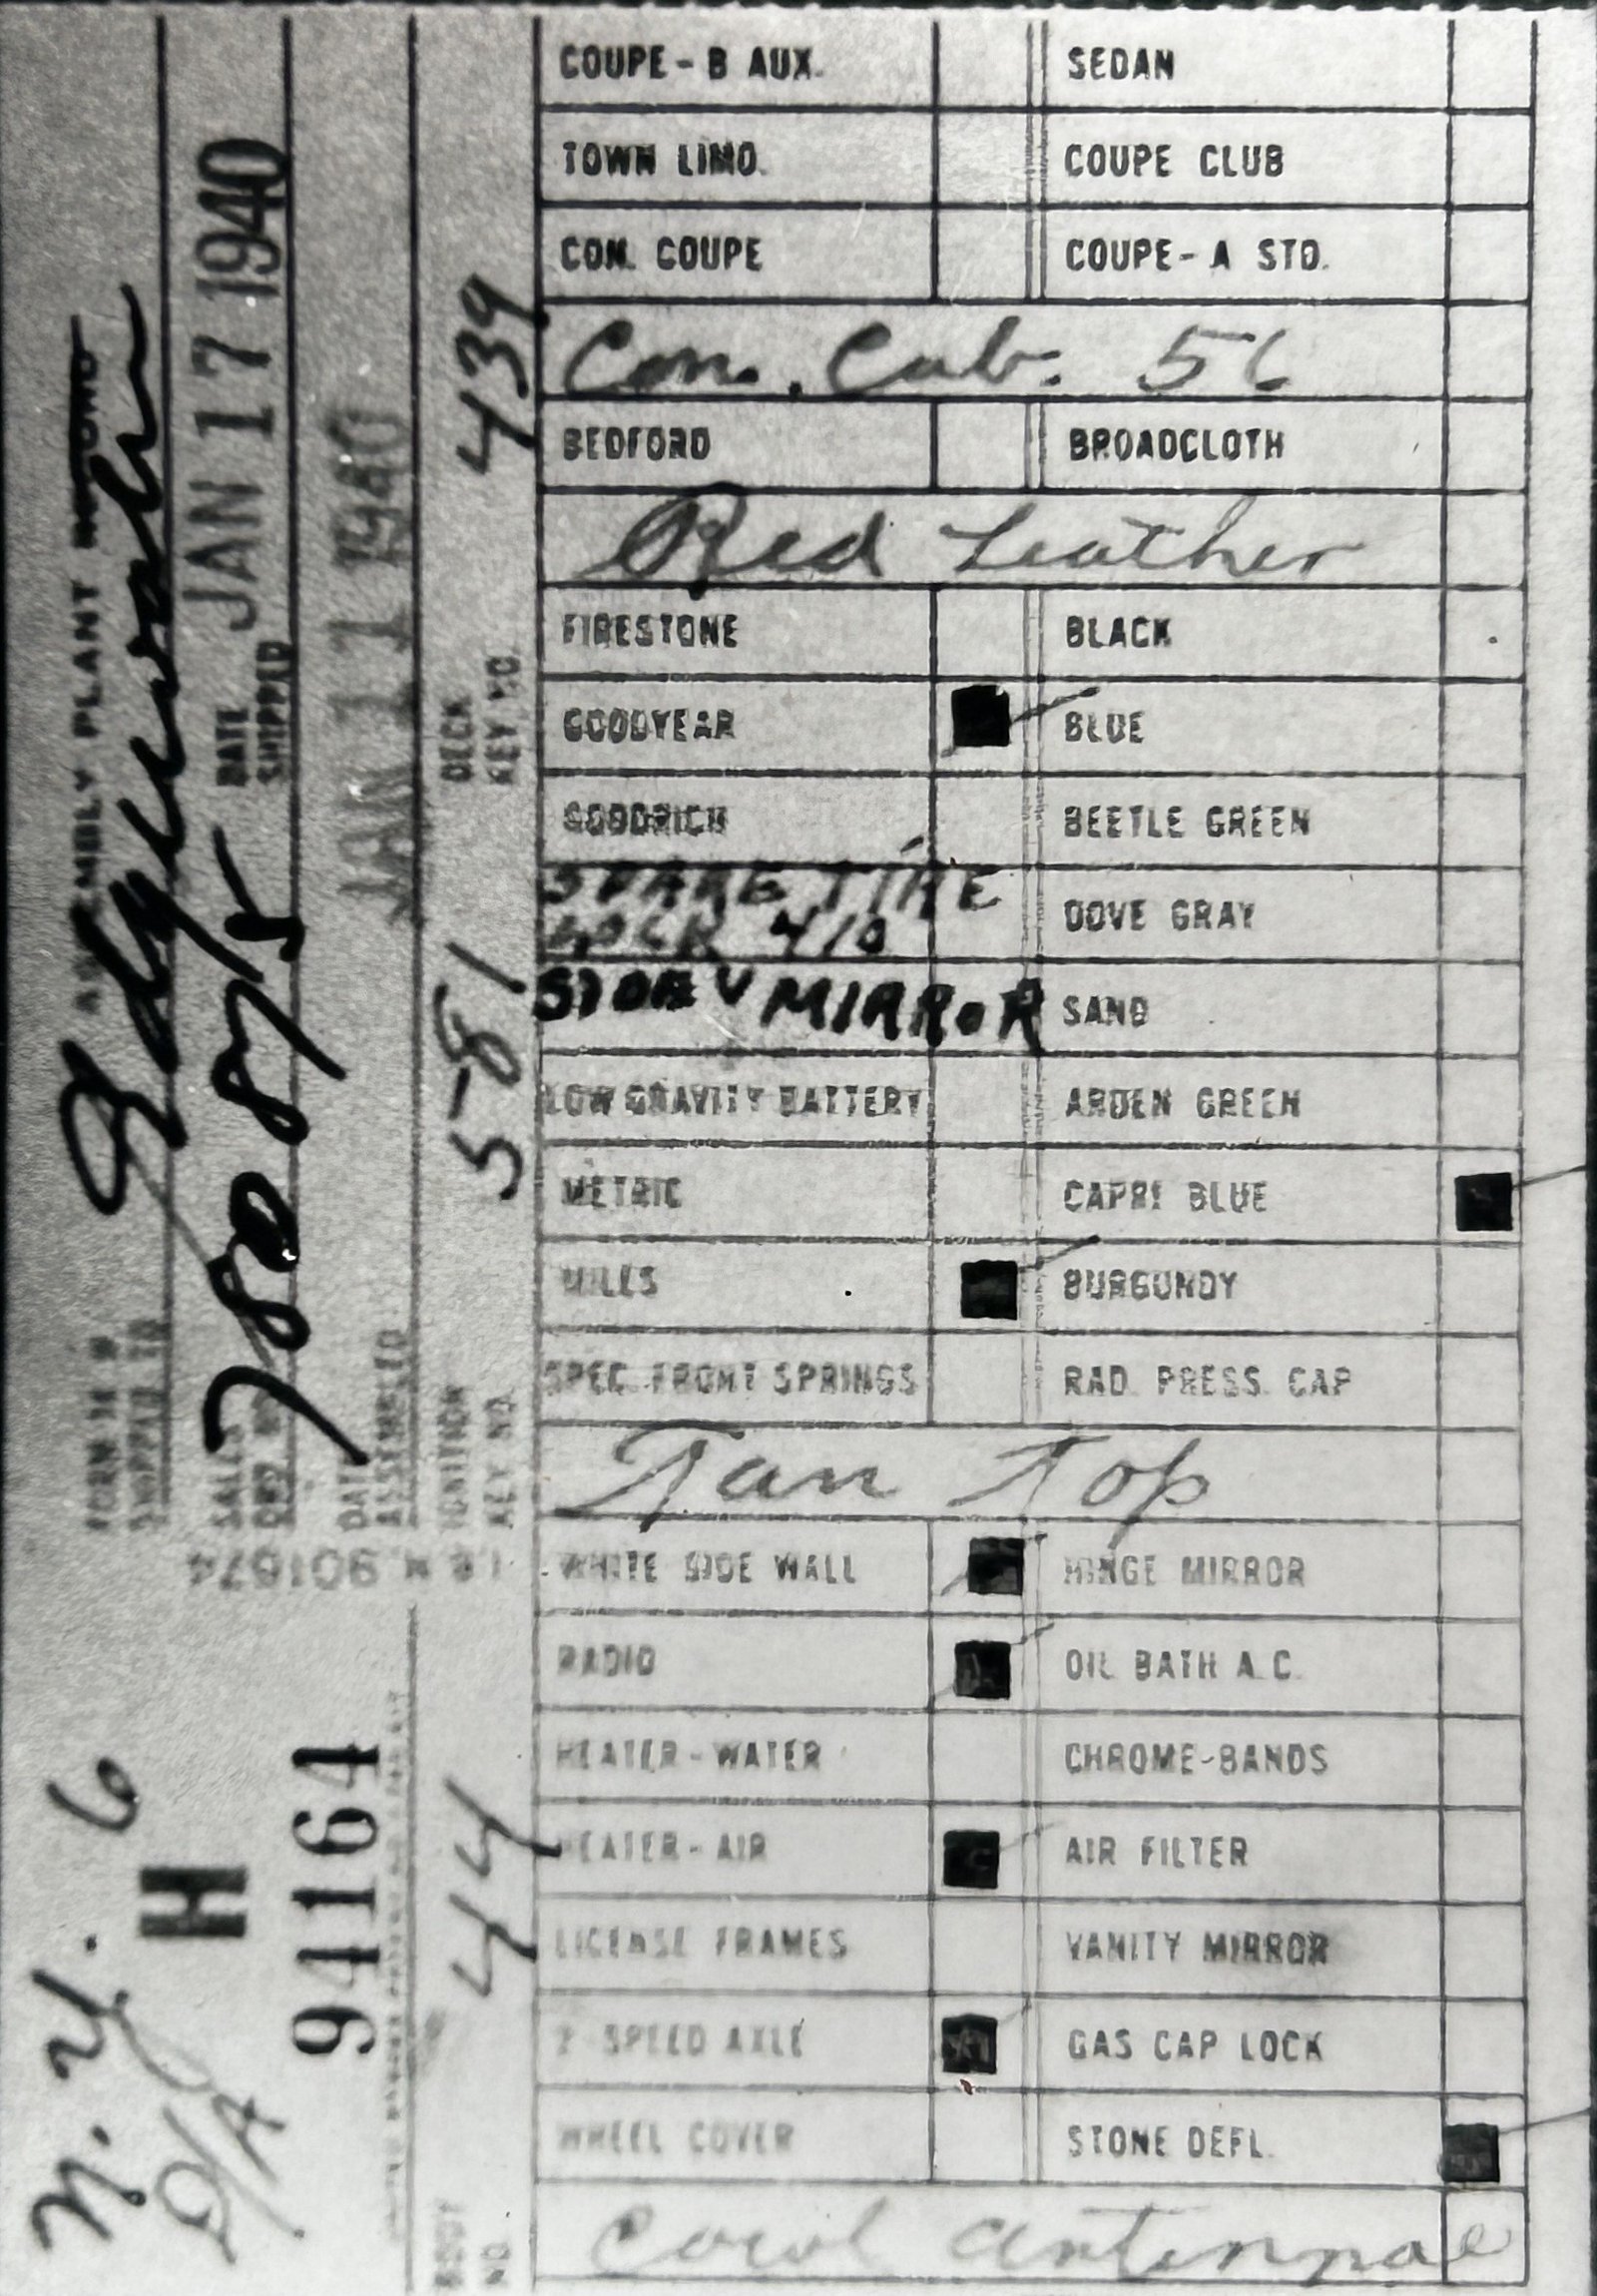 COUPE - B AUX. SEDAN
TOWN LIMO. COUPE CLUB
CON. COUPE COUPE - A STD.
Con. Cab. 56
BEDFORD BROADCLOTH
Red Leather
FIRESTONE BLACK
GOODYEAR BLUE
GOODRICH BEETLE GREEN
SPARE TIRE
LOCK 410 DOVE GRAY
MIRROR SAND
LOW GRAVITY BATTERY ARDEN GREEN
METRIC CAPRI BLUE
MILLS BURGUNDY
SPEC. FRONT SPRINGS RAD. PRESS. CAP
Tan Top
WHITE SIDE WALL HINGE MIRROR
RADIO OIL BATH A.C.
HEATER - WATER CHROME-BANDS
HEATER - AIR AIR FILTER
LICENSE FRAMES VANITY MIRROR
2 SPEED AXLE GAS CAP LOCK
WHEEL COVER STONE DEFL.
Cowl antennae
N.Y. 6
D/A
H
ASSEMBLY PLANT
Edgewater
SHIPPED TO
94164
SALES
ORD. NO.
780875
DATE
SHIPPED
JAN 17 1940
DATE
ASSEMBLED
JAN 11 1940
BODY
NO.
44
IGNITION
KEY NO.
5-81
DECK
KEY NO.
439